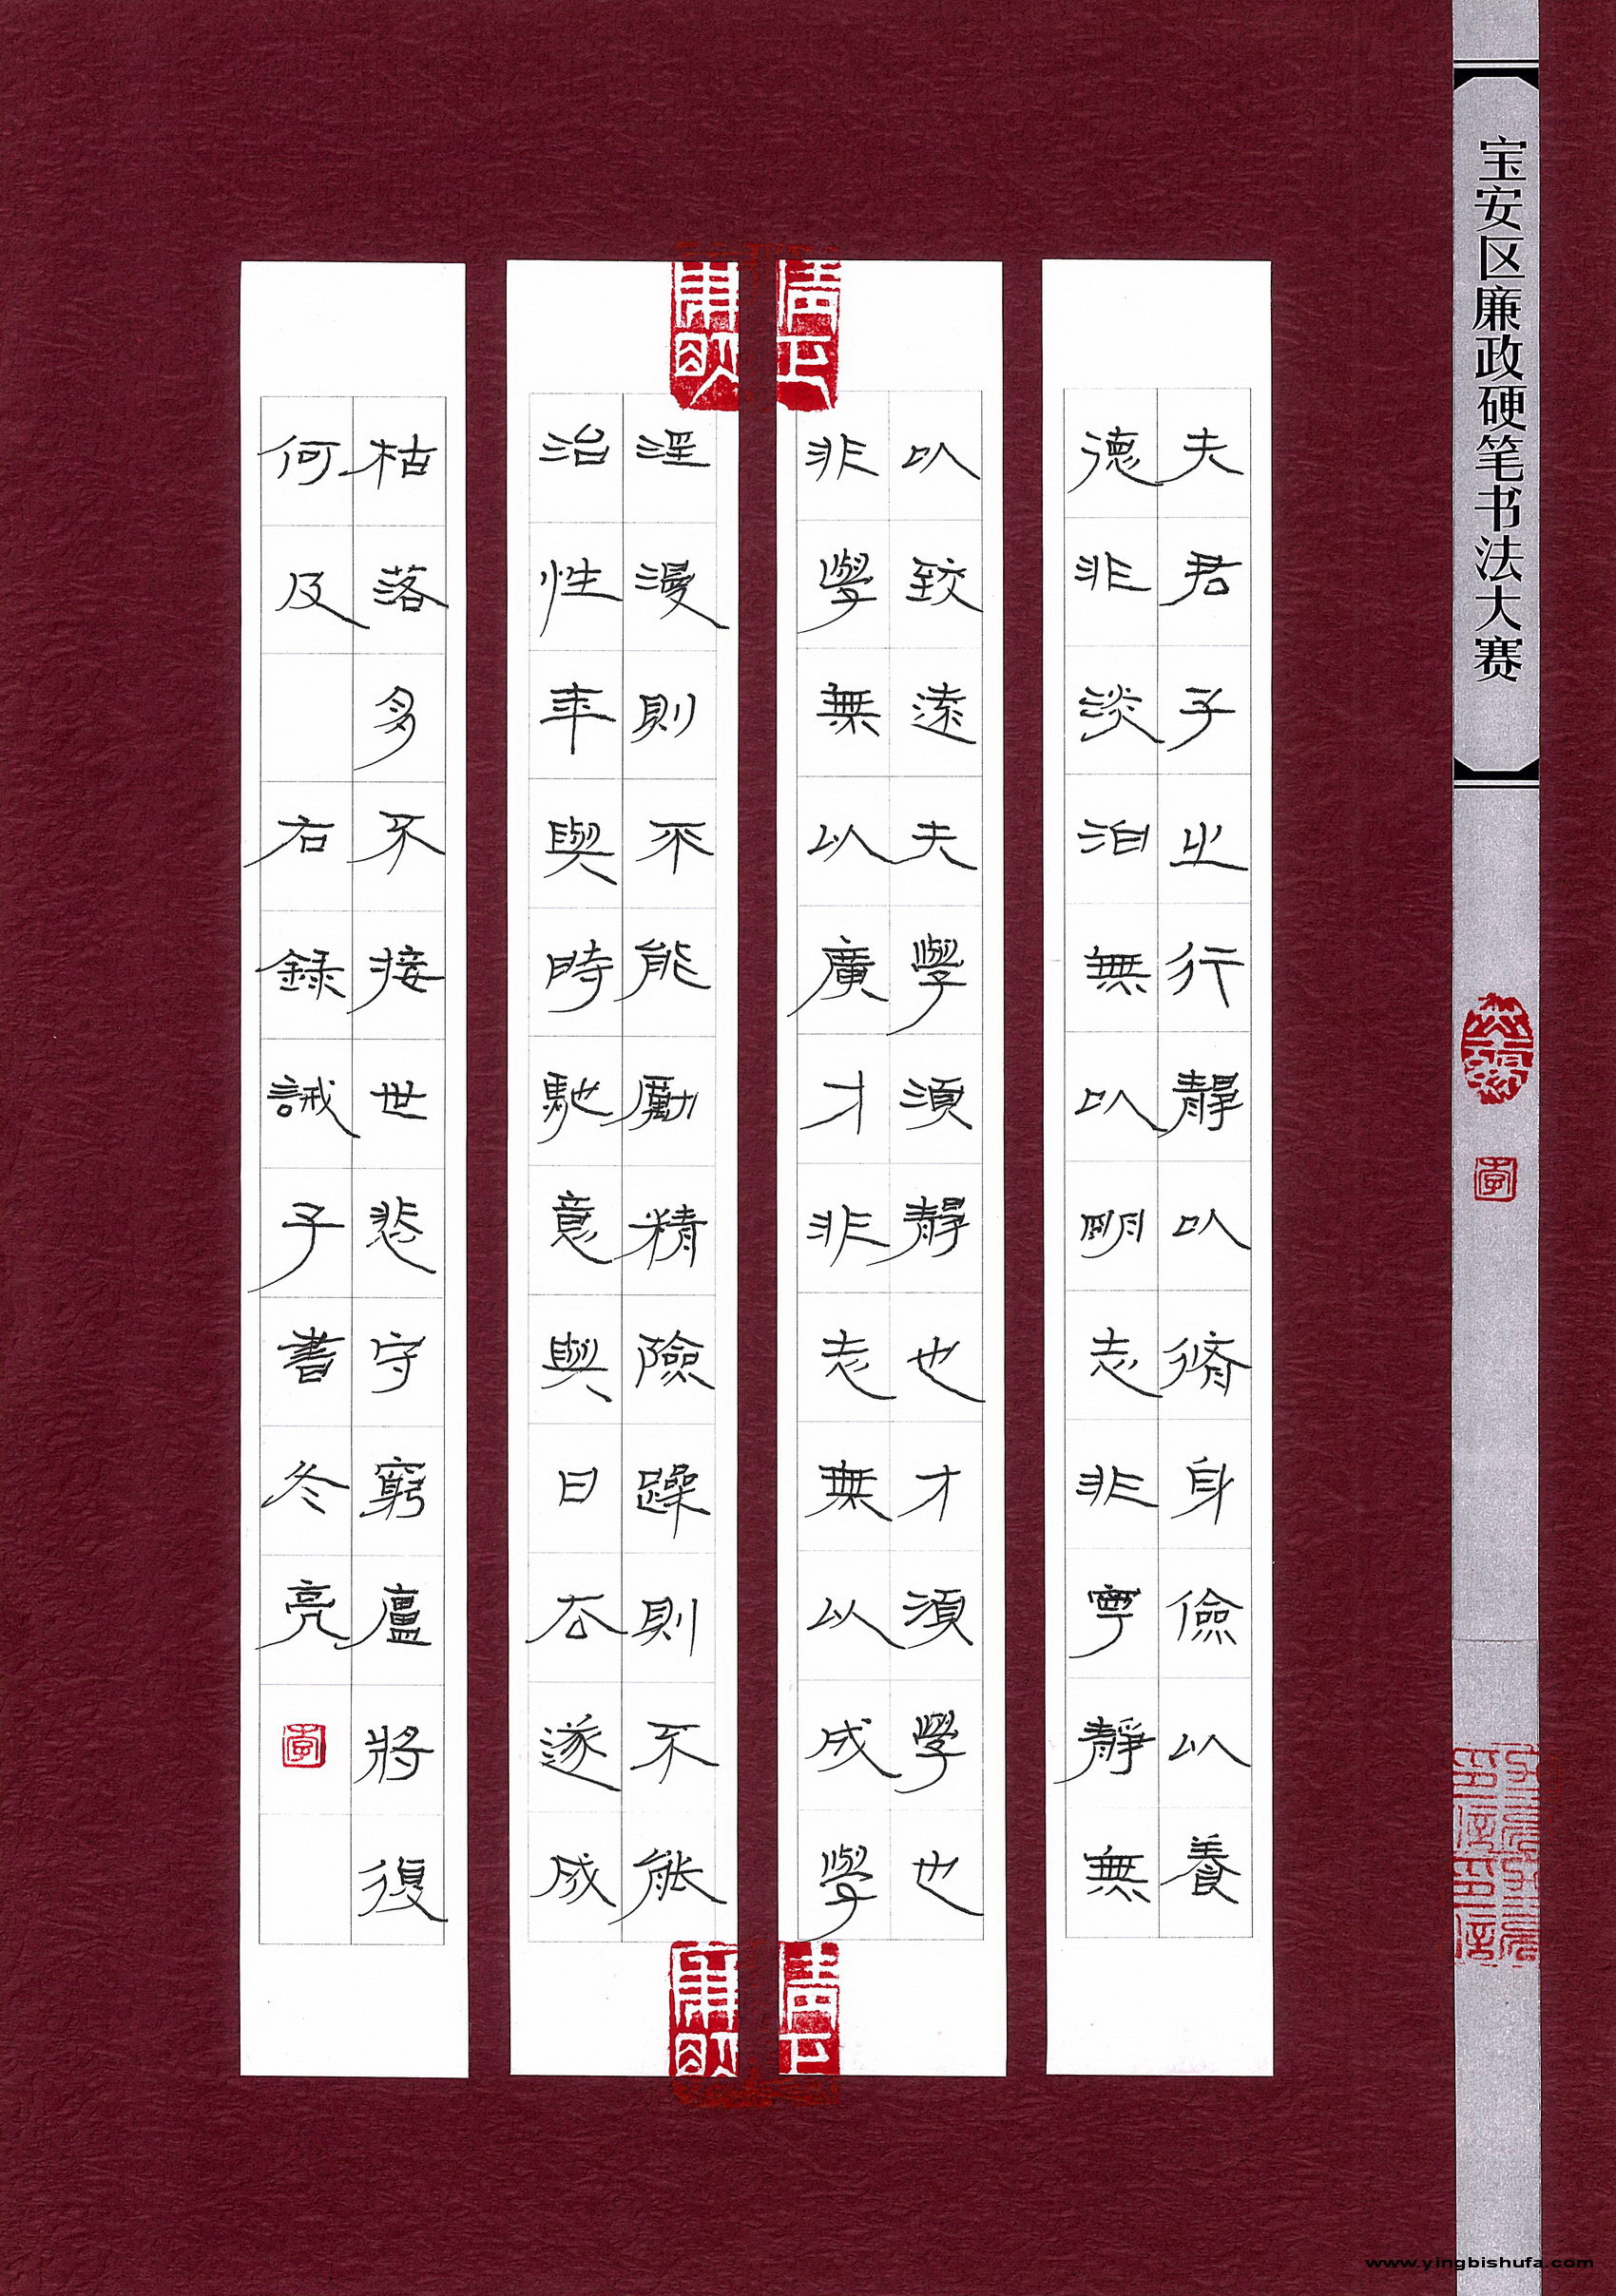 宝安区廉政硬笔书法大赛
夫君子之行靜以脩身儉以養
德非淡泊無以明志非寧靜無
以致遠夫學須靜也才須學也
非學無以廣才非志無以成學
淫漫則不能勵精險躁則不能
治性年與時馳意與日去遂成
枯落多不接世悲守窮廬將復
何及 右録誡子書冬亮
www.yingbishufa.com